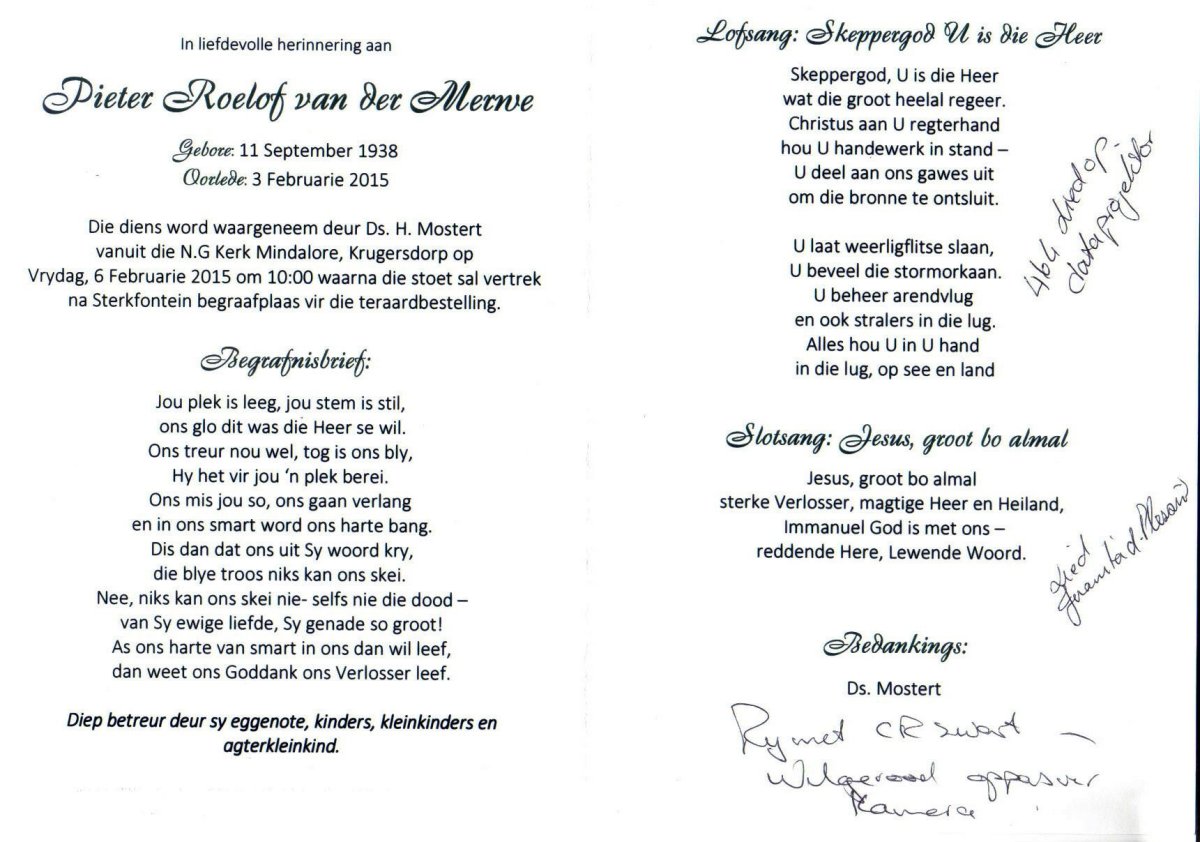 In liefdevolle herinnering aan
Pieter Roelof van der Merwe
Gebore: 11 September 1938
Oorlede: 3 Februarie 2015
Die diens word waargeneem deur Ds. H. Mostert
vanuit die N.G Kerk Mindalore, Krugersdorp op
Vrydag, 6 Februarie 2015 om 10:00 waarna die stoet sal vertrek
na Sterkfontein begraafplaas vir die teraardbestelling.
Begrafnisbrief:
Jou plek is leeg, jou stem is stil,
ons glo dit was die Heer se wil.
Ons treur nou wel, tog is ons bly,
Hy het vir jou ‘n plek berei.
Ons mis jou so, ons gaan verlang
en in ons smart word ons harte bang.
Dis dan dat ons uit Sy woord kry,
die blye troos niks kan ons skei.
Nee, niks kan ons skei nie- selfs nie die dood –
van Sy ewige liefde, Sy genade so groot!
As ons harte van smart in ons dan wil leef,
dan weet ons Goddank ons Verlosser leef.
Diep betreur deur sy eggenote, kinders, kleinkinders en
agterkleinkind.
Lofsang: Skeppergod U is die Heer
Skeppergod, U is die Heer
wat die groot heelal regeer.
Christus aan U regterhand
hou U handewerk in stand –
U deel aan ons gawes uit
om die bronne te ontsluit.
U laat weerligflitse slaan,
U beveel die stormorkaan.
U beheer arendvlug
en ook stralers in die lug.
Alles hou U in U hand
in die lug, op see en land
464 lied op
dataprojektor
Slotsang: Jesus, groot bo almal
Jesus, groot bo almal
sterke Verlosser, magtige Heer en Heiland,
Immanuel God is met ons –
reddende Here, Lewende Woord.
Lied
Juanita d. Plesau
Bedankings:
Ds. Mostert
Ry met CR Swart –
Wilgerood oppas vir
Kamera